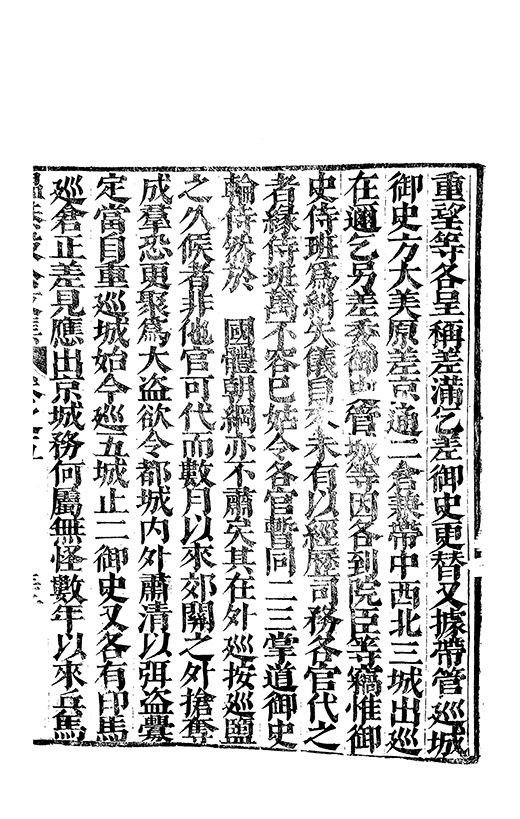 重望等各呈稱差滿乞差御史更替又據帶管巡城
御史方大美原差京通二倉兼帶中西北三城出巡
在邇乞另差委御史管城等因各到院臣等竊惟御
史侍班爲糾失儀自來未有以經歷司務各官代之
者緣侍班萬不容已姑令各官暫同二三掌道御史
輪侍然於 國體朝綱亦不肅矣其在外巡按巡鹽
之久候者非他官可代而數月以來郊關之外搶奪
成羣恐更聚爲大盜欲令都城内外肅清以弭盜釁
定當自重巡城始今巡五城止二御史又各有印馬
巡倉正差見應出京城務何屬無怪數年以來兵馬